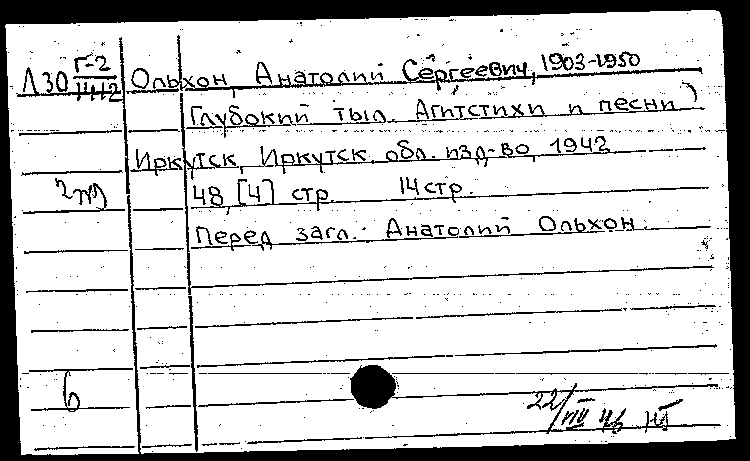 Л30 Г-2
1412 Ольхон, Анатолий Сергеевич, 1903-1950
Глубокий тыл. Агитстихи и песни)
Иркутск, Иркутск. обл. изд-во, 1942
48, [4] стр. 14 стр.
Перед загл.: Анатолий Ольхон.
6
22/VIII 46